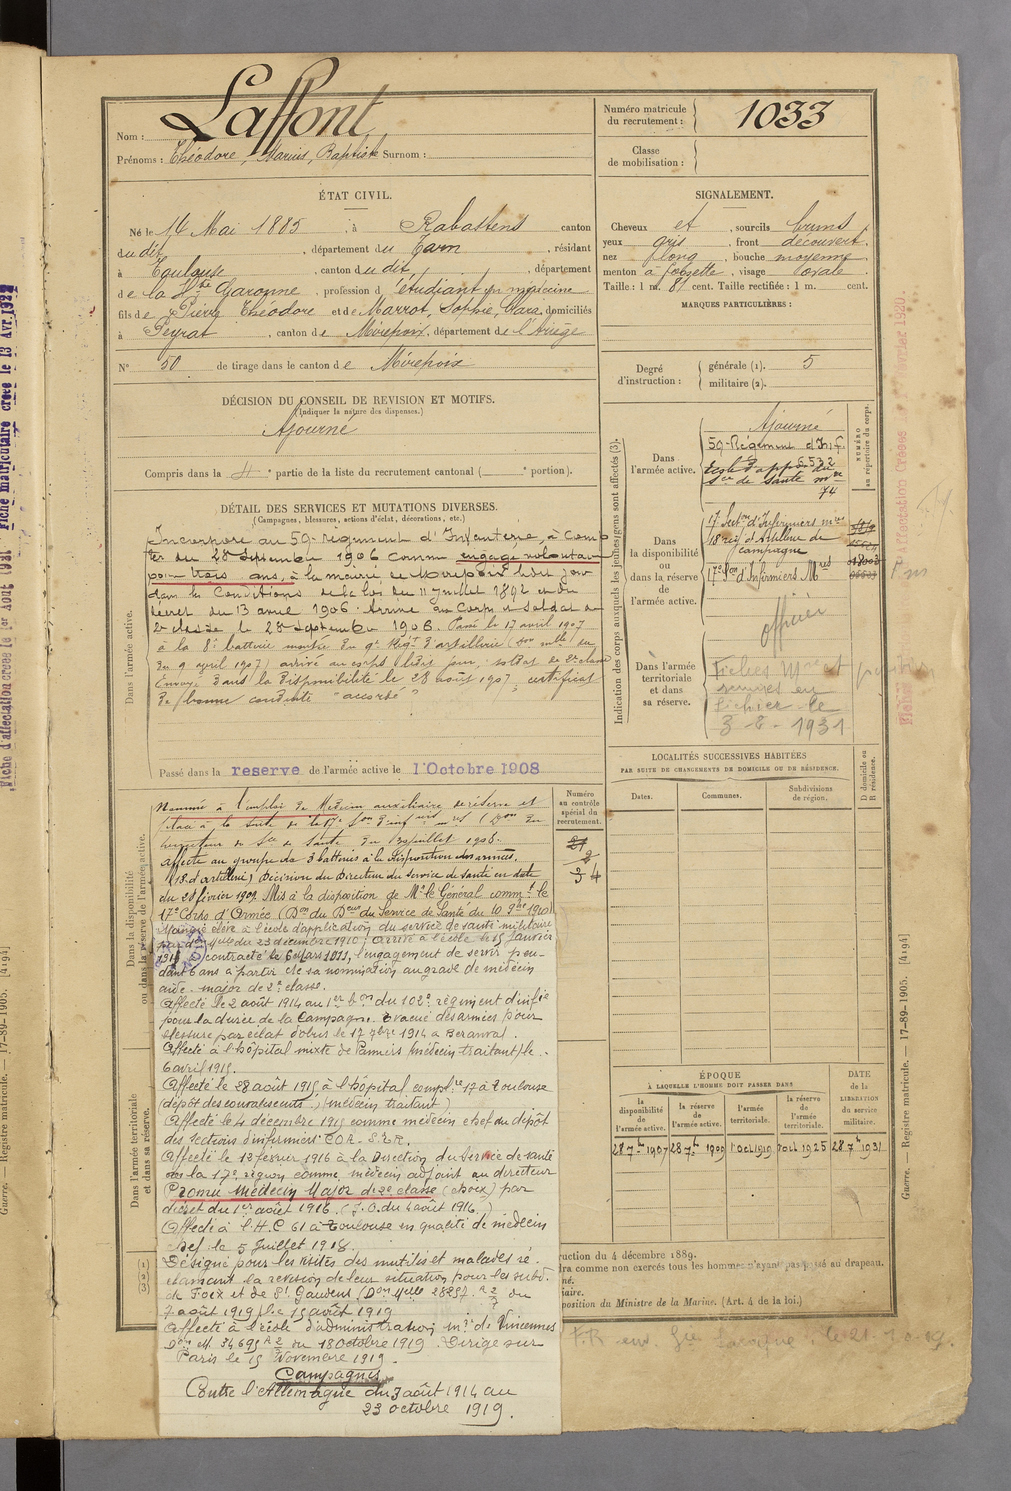 Nom : Laffont
Prénoms : Théodore, Marius, Baptiste Surnom :
Numéro matricule du recrutement : 1033
Classe de mobilisation :
ÉTAT CIVIL.
Né le 14 Mai 1885, à Rabastens canton
du dit, département du Tarn, résidant
à Toulouse, canton du dit, département
de la Hte Garonne, profession d'étudiant en médecine
fils de Pierre Théodore et de Marrot, Sophie, Clara, domiciliés
à Peyrat, canton de Mirepoix, département de l'Ariège
N° 50 de tirage dans le canton de Mirepoix
SIGNALEMENT.
Cheveux et, sourcils bruns
yeux gris, front découvert,
nez long, bouche moyenne
menton à fossette, visage ovale
Taille : 1 m. 81 cent. Taille rectifiée : 1 m. cent.
MARQUES PARTICULIÈRES :
Degré d'instruction : générale (1). 5
militaire (2).
DÉCISION DU CONSEIL DE REVISION ET MOTIFS.
(Indiquer la nature des dispenses.)
Ajourné
Compris dans la partie de la liste du recrutement cantonal ( portion).
DÉTAIL DES SERVICES ET MUTATIONS DIVERSES.
(Campagnes, blessures, actions d'éclat, décorations, etc.)
Dans l'armée active.
Incorporé au 59e régiment d'Infanterie, à Comp
ter du 28 Septembre 1906 comme engagé volontaire
pour trois ans, à la mairie de Mirepoix ledit jour
dans les Conditions de la loi du 11 juillet 1892 et du
décret du 13 avril 1906. Arrivé au Corps et soldat de
2e classe le 28 Septembre 1906. Passé le 17 avril 1907
à la 8e batterie montée du 9e Régt d'artillerie
du 9 avril 1907) arrivé au corps ledit jour, soldat de 2e classe
Envoyé dans la disponibilité le 28 août 1907, certificat
de bonne conduite "accordé"
Passé dans la reserve de l'armée active le 1 Octobre 1908
Dans la disponibilité ou dans la réserve de l'armée active.
Nommé à l'emploi de Médecin auxiliaire de réserve et
placé à la suite de la 17e Son d'infirmiers
Directeur du Sce de Santé du 13 juillet 1908.
Affecté au groupe de 3 batteries à la disposition des armées.
(18e d'artillerie) Décision du Directeur du Service de Santé en date
du 28 février 1909. Mis à la disposition de Mr le Général commt le
17e Corps d'Armée (Don du Deur du Service de Santé du 10 9bre 1910)
élève à l'école d'application du service de santé militaire
par du 23 décembre 1910, arrivé à l'école le 15 janvier
1911, contracté le 6 Mars 1911, l'engagement de servir pen-
dant 6 ans à partir de sa nomination au grade de médecin
aide-major de 2e classe.
Affecté le 2 août 1914 au 1er bon du 102e régiment d'infie
pour la durée de la Campagne. Evacué des armées pour
blessure par éclat d'obus le 17 7bre 1914 à
Affecté à l'hôpital mixte de Pamiers (médecin traitant) le
6 avril 1915.
Affecté le 28 août 1915 à l'hôpital complre 17 à Toulouse
(dépôt des convalescents) (médecin traitant)
Affecté le 4 décembre 1915 comme médecin chef du dépôt
des sections d'infirmiers C.O.A. - S.I.R.
Affecté le 12 février 1916 à la Direction du Service de santé
de la 17e région comme médecin adjoint au directeur
Promu Médecin Major de 2e classe (choix) par
décret du 1er août 1916. (J.O. du 4 août 1916.)
Affecté à l'H.C 61 à Toulouse en qualité de médecin
chef le 5 Juillet 1918.
Désigné pour les visites des mutilés et malades ré-
clamant la révision de leur situation pour les subd.
de Foix et de St Gaudens (Don Melle 28257 du
7 août 1919) le 15 août 1919
Affecté à l'école d'administration mre de Vincennes
Don M. 34695 du 18 octobre 1919. Dirigé sur
Paris le 15 Novembre 1919.
Campagnes
Contre l'Allemagne du 3 août 1914 au
23 octobre 1919.
Dans l'armée territoriale et dans sa réserve.
Numéro au contrôle spécial du recrutement.
34
Indication des corps auxquels les jeunes gens sont affectés (3).
NUMÉRO au répertoire du corps.
Dans l'armée active.
Ajourné
59e Régiment d'Inf.
6532
Ecole d'appon du
Sce de santé mre
74
Dans la disponibilité ou dans la réserve de l'armée active.
17e Secton d'Infirmiers mres
18e régt d'Artillerie de
campagne
17e Son d'Infirmiers Mres
officier
Dans l'armée territoriale et dans sa réserve.
Fiches
fichier le
3-8-1931
LOCALITÉS SUCCESSIVES HABITÉES
PAR SUITE DE CHANGEMENTS DE DOMICILE OU DE RÉSIDENCE.
Dates.
Communes.
Subdivisions de région.
D domicile ou R résidence.
ÉPOQUE
À LAQUELLE L'HOMME DOIT PASSER DANS
la disponibilité de l'armée active.
la réserve de l'armée active.
l'armée territoriale.
la réserve de l'armée territoriale.
DATE de la LIBÉRATION du service militaire.
28 7bre 1907
28 7bre 1909
1 Oct 1919
1 Oct 1925
28 7bre 1931
ruction du 4 décembre 1889.
dra comme non exercés tous les hommes n'ayant pas passé au drapeau.
né.
iaire.
position du Ministre de la Marine. (Art. 4 de la loi.)
le 21-10-19.
Guerre. — Registre matricule. — 17-89-1905. [4194]
Fiche d'affectation créée le 1er Aout 1931
Fiche matriculaire créée le 13 Avr. 1922